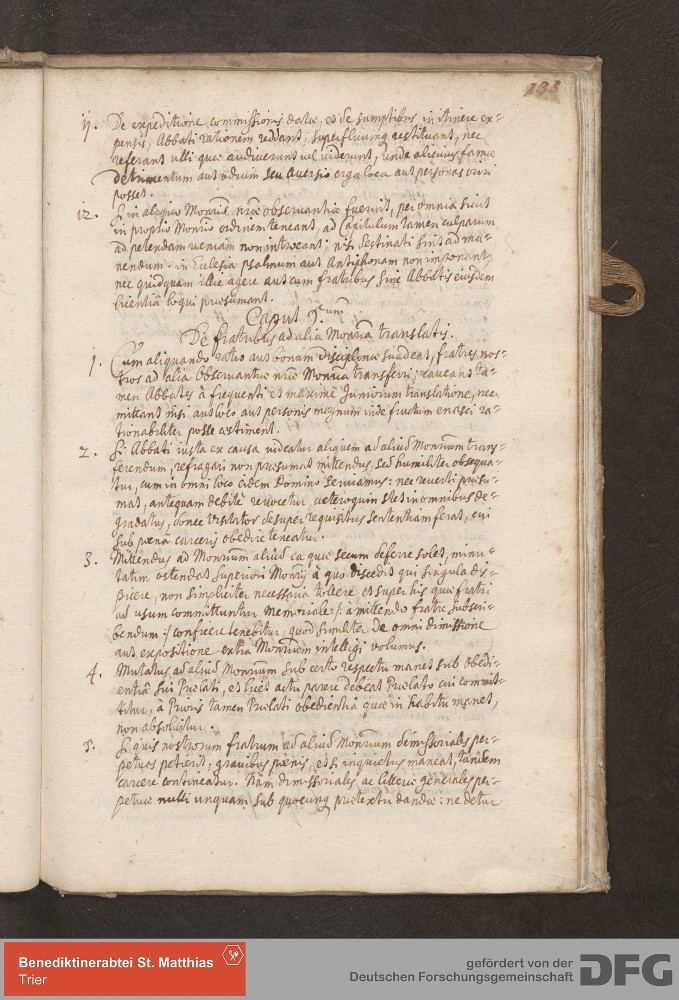 133
ij. De expeditione commissionis datae, et de sumptibus in itinere ex=
pensis, Abbati rationem reddant, superfluumq restituant, nec
referant ulli quae audiverunt vel viderunt, unde alicuius famae
detrimentum aut odium seu aversio erga loca aut personas oriri
posset.
12. Si in aliquo Monrio nrae observantiae fuerint, per omnia sicut
in proprio Monrio ordinem teneant, ad Capitulum tamen culparum
ad petendam veniam non introeant; nisi destinati sint ad ma=
nendum. in Ecclesia psalmum aut Antiphonam non imponant,
nec quidquam illic agere aut cum fratribus sine Abbatis eiusdem
licentia loqui praesumant.
Caput Xum
De fratribus ad alia Monria translatis.
1. Cum aliquando ratio aut bonum Disciplinae suadeat, fratres nos=
tros ad alia Observantiae nrae Monria transferri; caveant ta=
men Abbates à frequenti et maxime Juniorum translatione, nec
mittant nisi aut loco aut personis magnum inde fructum enasci ra=
tionabiliter posse aestiment.
2. Si Abbati iusta ex causa videatur aliquem ad aliud Monrium trans=
ferendum, refragari non praesumat mittendus, sed humiliter obsequa=
tur, cum in omni loco eidem Domino serviamus: nec reverti praesu=
mat, antequam debitè revocetur, veteroquin stet in omnibus de=
gradatus, donec Visitator desuper requisitus sententiam ferat, cui
sub poenâ carceris obedire teneatur.
3. Mittendus ad Monrium aliud ea quae secum deferre solet, minu=
tatim ostendat Superiori Monrij à quo discedit qui singula ds=
picere, non simpliciter necessaria tollere et super his quae fratri
ad usum committuntur Memoriale /: a mittendo fratre subscri=
bendum :/ conficere tenebitur, quod similiter de omni dimissione
aut expositione extra Monrium intelligi volumus.
4. Mutatus ad aliud Monrium sub certo respectu manet sub obedi=
entiâ sui Praelati, et licet actu parere debeat Praelato cui commit=
titur, à Prioris tamen Praelati obedientiâ quae in habitu manet,
non absolvitur.
5. Si quis nostrorum fratrum ad aliud Monrium dimissoriales per=
petuas petierit, gravibus poenis, et si inquietus maneat, tandem
carcere contineatur. Nam dimissoriales ac litterae generales per=
petuae nulli unquam sub quocunq praetextu dandae: ne detur
Benediktinerabtei St. Matthias
Trier
gefördert von der
Deutschen Forschungsgemeinschaft
DFG